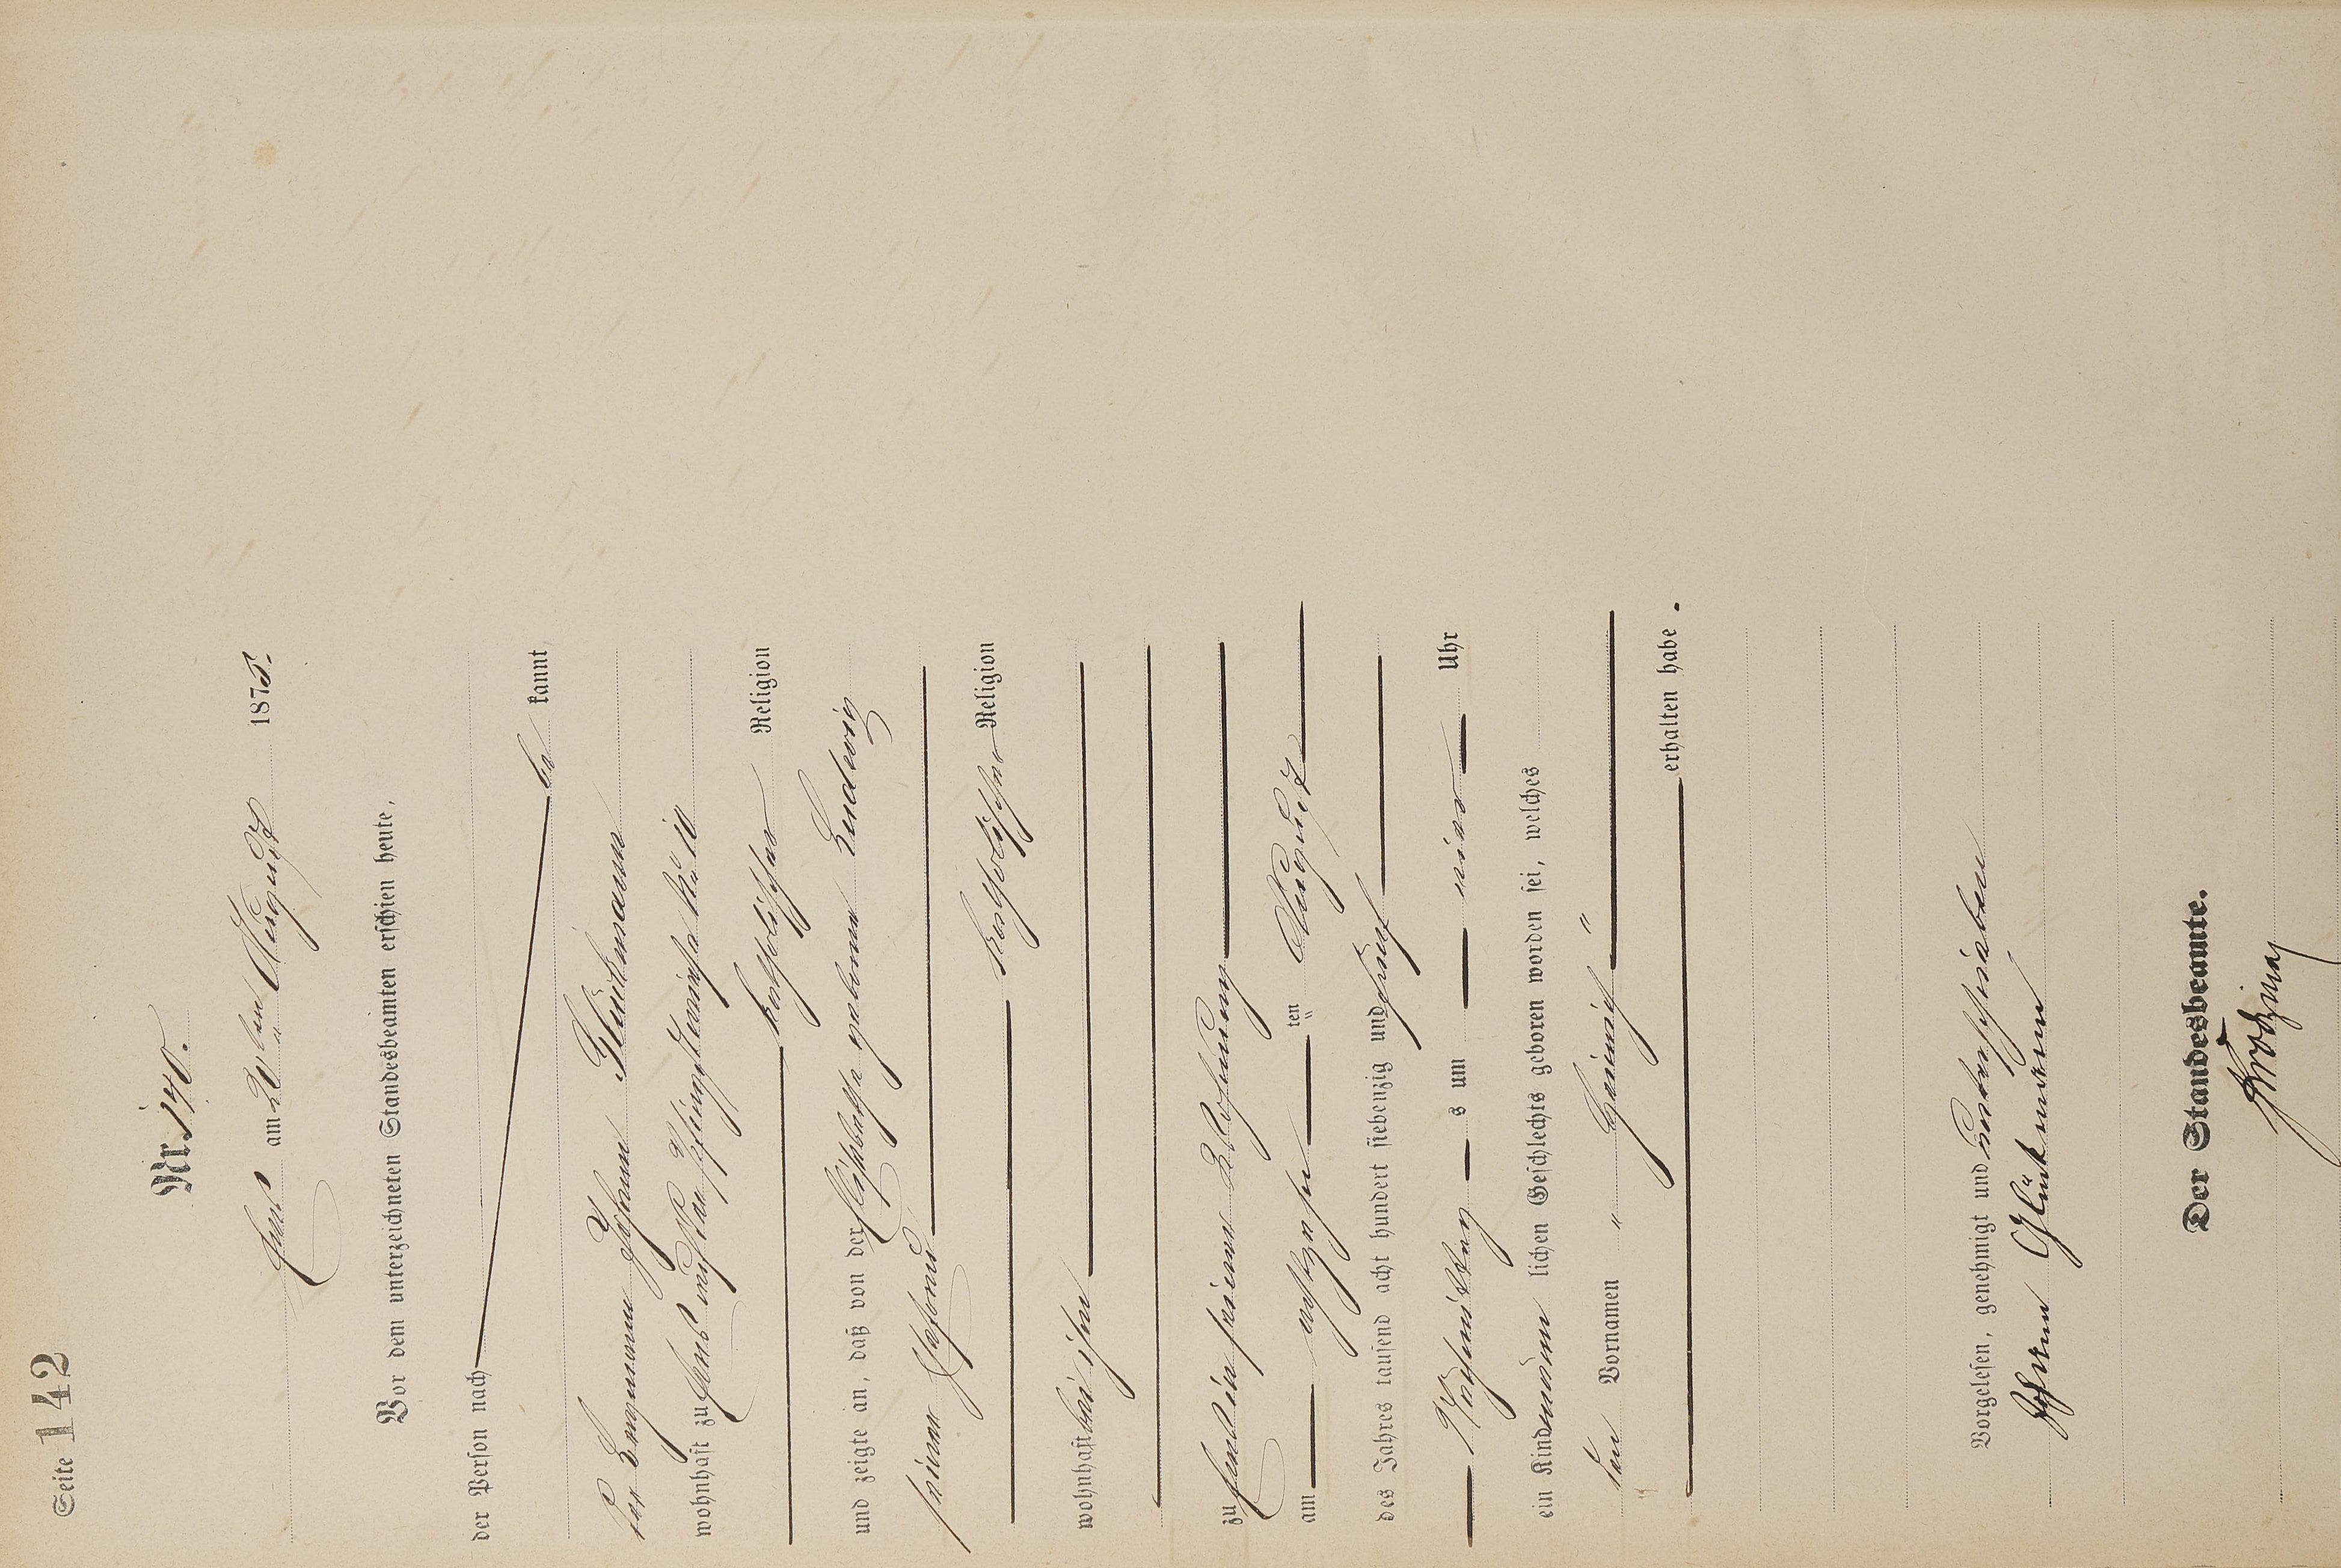 Seite 142
Nr. 140.
am 20ten August 1875.
Vor dem unterzeichneten Standesbeamten erschien heute,
der Person nach
be kannt,
der Bergmann Johann Glückmann
wohnhaft zu
katholischer Religion
und zeigte an, daß von der Elisabetha geborene Ludwig
seiner Ehefrau
katholischer Religion
wohnhaft bei ihm
zu in seiner Wohnung
am achtzehn ten August
des Jahres tausend acht hundert siebenzig und fünf
Nachmittag s um vier Uhr
ein Kind männ lichen Geschlechts geboren worden sei, welches
den Vornamen " Heinrich "
erhalten habe.
Vorgelesen, genehmigt und unterschrieben
Johann Glückmann
Der Standesbeamte.